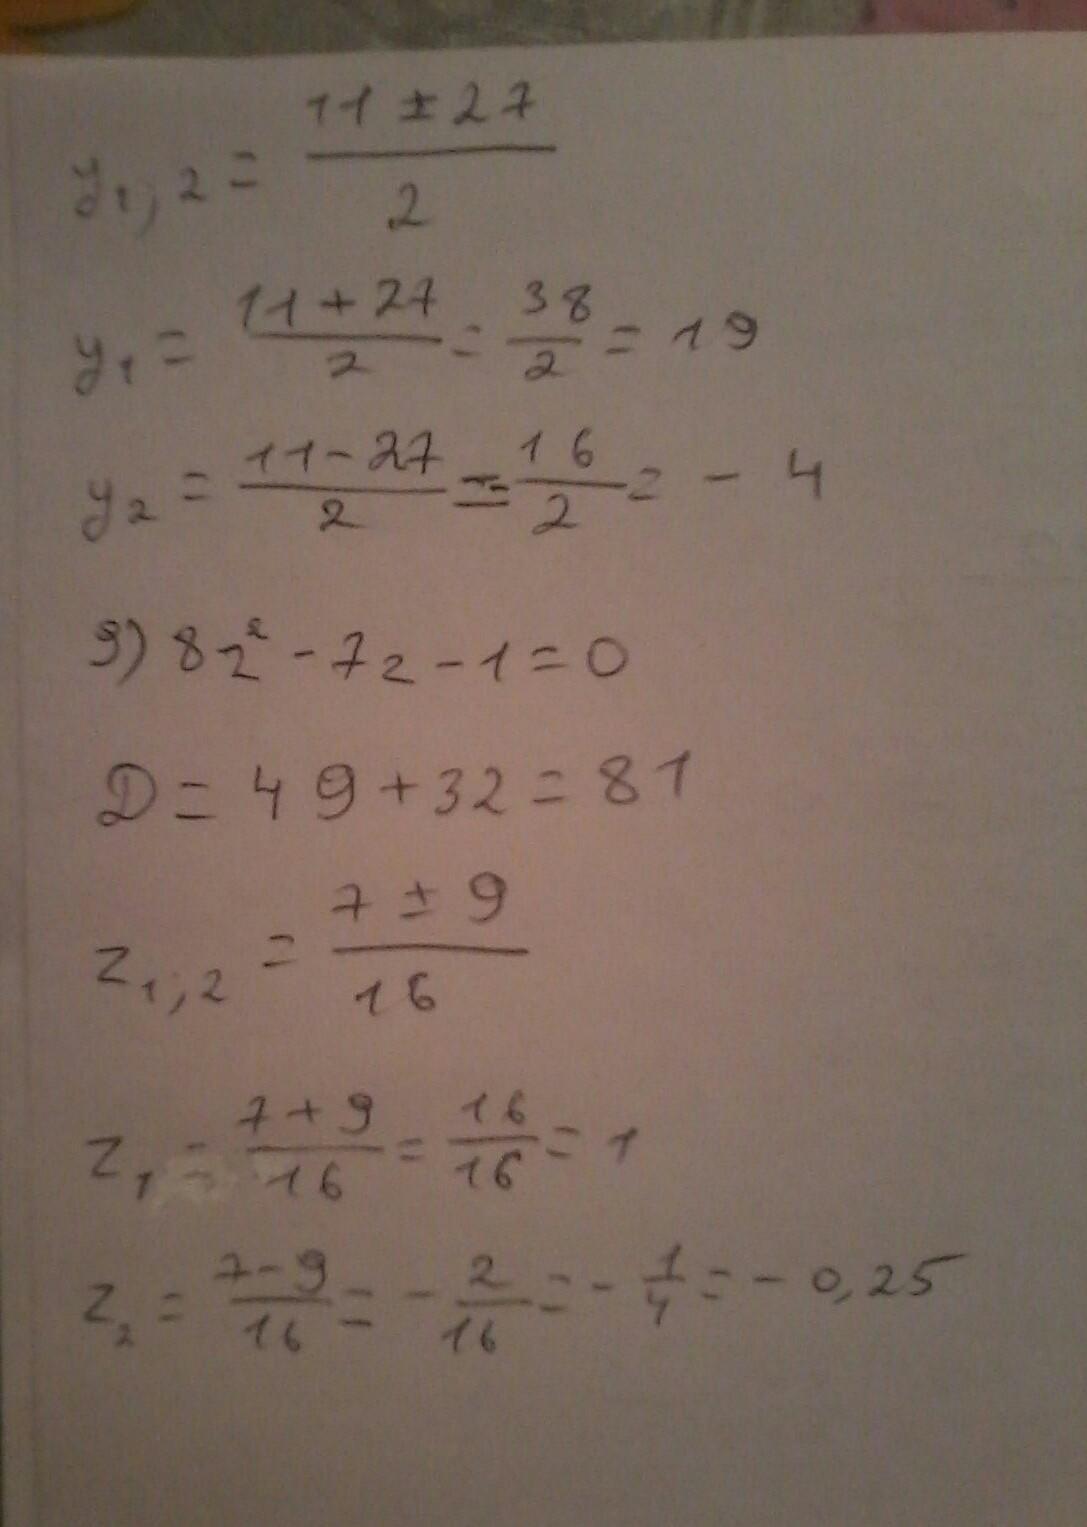 y₁,₂ = (11 ± 27)/2
y₁ = (11 + 27)/2 = 38/2 = 19
y₂ = (11 - 27)/2 = 16/2 = - 4
9) 8z² - 7z - 1 = 0
D = 49 + 32 = 81
z₁;₂ = (7 ± 9)/16
z₁ = (7 + 9)/16 = 16/16 = 1
z₂ = (7 - 9)/16 = - 2/16 = - 1/4 = - 0,25